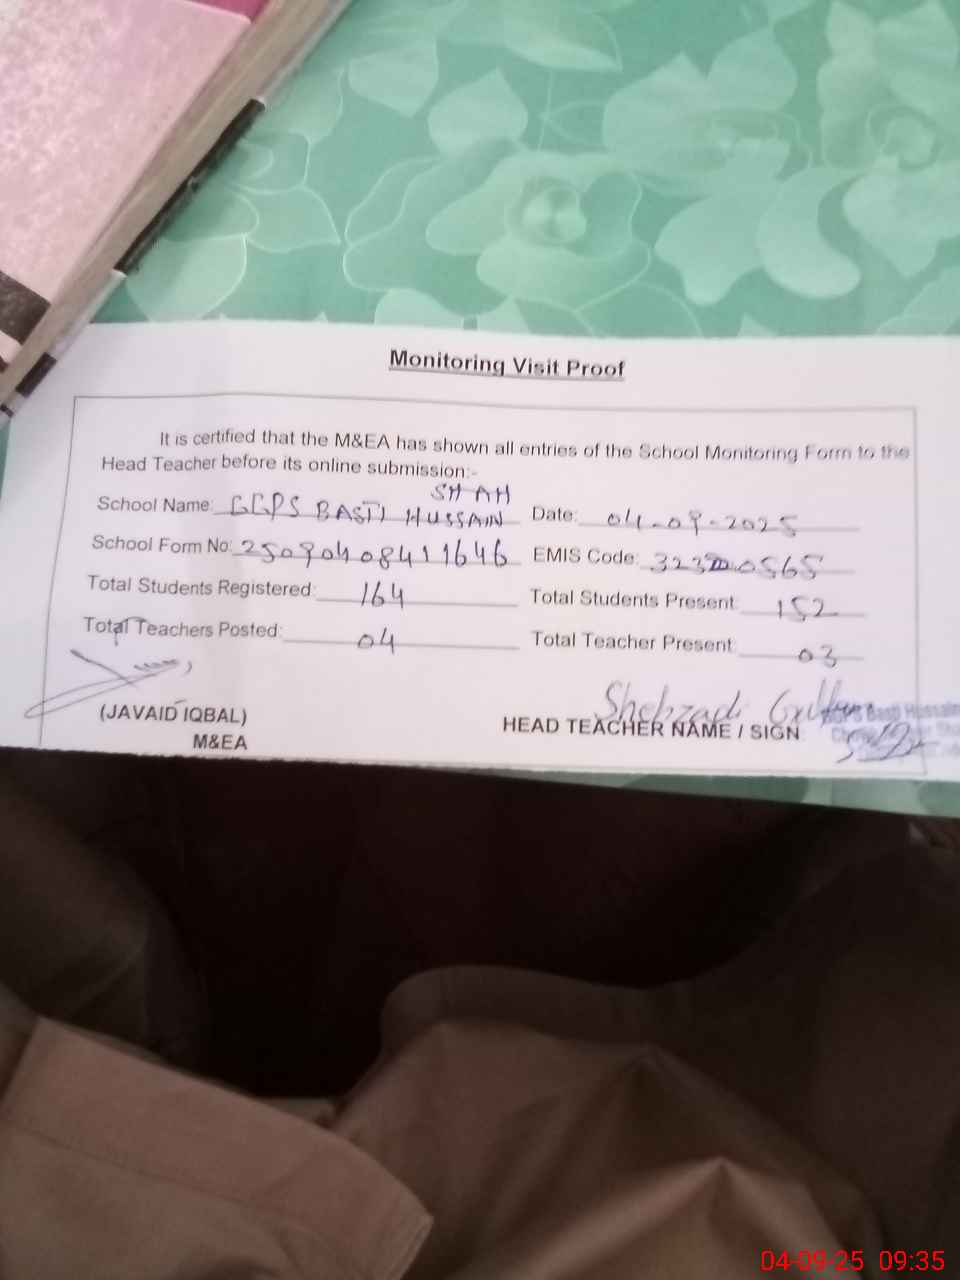 Monitoring Visit Proof
It is certified that the M&EA has shown all entries of the School Monitoring Form to the
Head Teacher before its online submission:-
SHAH
School Name: GGPS BASTI HUSSAIN Date: 04-09-2025
School Form No: 25090408411646 EMIS Code:
Total Students Registered: 164 Total Students Present: 152
Total Teachers Posted: 04 Total Teacher Present: 03
Shehzadi
(JAVAID IQBAL) HEAD TEACHER NAME / SIGN
M&EA
GGPS Basti Hussain
04-09-25 09:35